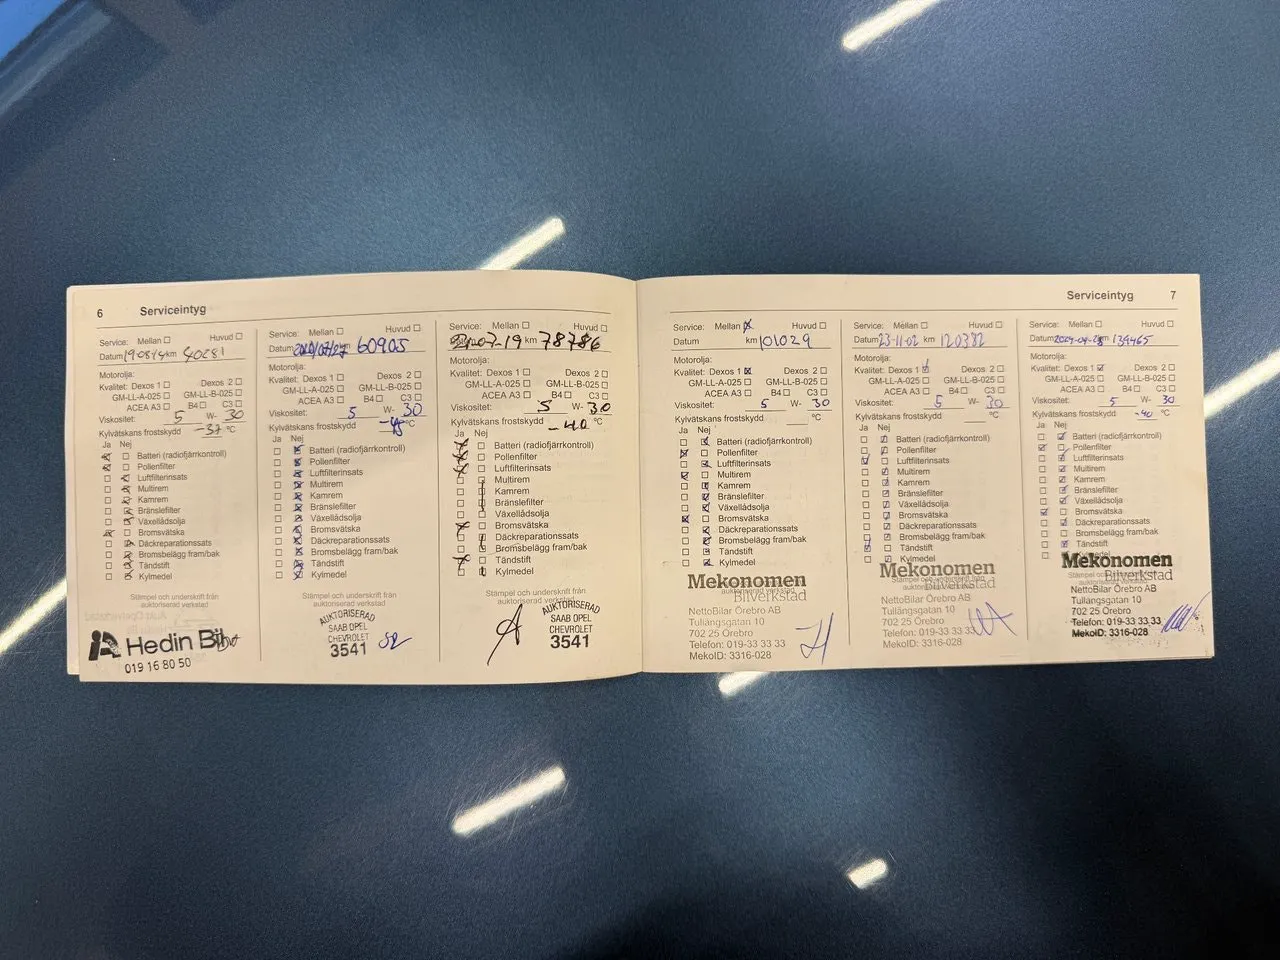 6 Serviceintyg
Service: Mellan ☐ Huvud ☐
Datum 190814 km 40281
Motorolja:
Kvalitet: Dexos 1 ☐ Dexos 2 ☐
GM-LL-A-025 ☐ GM-LL-B-025 ☐
ACEA A3 ☐ B4 ☐ C3 ☐
Viskositet: 5 W- 30
Kylvätskans frostskydd -37 °C
Ja Nej
Batteri (radiofjärrkontroll)
Pollenfilter
Luftfilterinsats
Multirem
Kamrem
Bränslefilter
Växellådsolja
Bromsvätska
Däckreparationssats
Bromsbelägg fram/bak
Tändstift
Kylmedel
Stämpel och underskrift från
auktoriserad verkstad
Hedin Bil
019 16 80 50
Service: Mellan ☐ Huvud ☐
Datum 2020/07/27 km 60905
Motorolja:
Kvalitet: Dexos 1 ☐ Dexos 2 ☐
GM-LL-A-025 ☐ GM-LL-B-025 ☐
ACEA A3 ☐ B4 ☐ C3 ☐
Viskositet: 5 W- 30
Kylvätskans frostskydd °C
Ja Nej
Batteri (radiofjärrkontroll)
Pollenfilter
Luftfilterinsats
Multirem
Kamrem
Bränslefilter
Växellådsolja
Bromsvätska
Däckreparationssats
Bromsbelägg fram/bak
Tändstift
Kylmedel
Stämpel och underskrift från
auktoriserad verkstad
AUKTORISERAD
SAAB OPEL
CHEVROLET
3541
Service: Mellan ☐ Huvud ☐
21-07-19 km 78786
Motorolja:
Kvalitet: Dexos 1 ☐ Dexos 2 ☐
GM-LL-A-025 ☐ GM-LL-B-025 ☐
ACEA A3 ☐ B4 ☐ C3 ☐
Viskositet: 5 W- 30
Kylvätskans frostskydd -40 °C
Ja Nej
Batteri (radiofjärrkontroll)
Pollenfilter
Luftfilterinsats
Multirem
Kamrem
Bränslefilter
Växellådsolja
Bromsvätska
Däckreparationssats
Bromsbelägg fram/bak
Tändstift
Kylmedel
Stämpel och underskrift från
auktoriserad verkstad
AUKTORISERAD
SAAB OPEL
CHEVROLET
3541
Serviceintyg 7
Service: Mellan ☒ Huvud ☐
Datum km 101029
Motorolja:
Kvalitet: Dexos 1 ☒ Dexos 2 ☐
GM-LL-A-025 ☐ GM-LL-B-025 ☐
ACEA A3 ☐ B4 ☐ C3 ☐
Viskositet: 5 W- 30
Kylvätskans frostskydd °C
Ja Nej
Batteri (radiofjärrkontroll)
Pollenfilter
Luftfilterinsats
Multirem
Kamrem
Bränslefilter
Växellådsolja
Bromsvätska
Däckreparationssats
Bromsbelägg fram/bak
Tändstift
Kylmedel
Mekonomen
Bilverkstad
NettoBilar Örebro AB
Tullängsgatan 10
702 25 Örebro
Telefon: 019-33 33 33
MekoID: 3316-028
Service: Mellan ☐ Huvud ☐
Datum 23-11-02 km 120382
Motorolja:
Kvalitet: Dexos 1 ☑ Dexos 2 ☐
GM-LL-A-025 ☐ GM-LL-B-025 ☐
ACEA A3 ☐ B4 ☐ C3 ☐
Viskositet: 5 W- 30
Kylvätskans frostskydd °C
Ja Nej
Batteri (radiofjärrkontroll)
Pollenfilter
Luftfilterinsats
Multirem
Kamrem
Bränslefilter
Växellådsolja
Bromsvätska
Däckreparationssats
Bromsbelägg fram/bak
Tändstift
Kylmedel
Mekonomen
Stämpel och underskrift från
Bilverkstad
NettoBilar Örebro AB
Tullängsgatan 10
702 25 Örebro
Telefon: 019-33 33 33
MekoID: 3316-028
Service: Mellan ☐ Huvud ☐
Datum 139465
Motorolja:
Kvalitet: Dexos 1 ☑ Dexos 2 ☐
GM-LL-A-025 ☐ GM-LL-B-025 ☐
ACEA A3 ☐ B4 ☐ C3 ☐
Viskositet: 5 W- 30
Kylvätskans frostskydd -40 °C
Ja Nej
Batteri (radiofjärrkontroll)
Pollenfilter
Luftfilterinsats
Multirem
Kamrem
Bränslefilter
Växellådsolja
Bromsvätska
Däckreparationssats
Bromsbelägg fram/bak
Tändstift
Kylmedel
Mekonomen
Stämpel och underskrift från
Bilverkstad
auktoriserad verkstad
NettoBilar Örebro AB
Tullängsgatan 10
702 25 Örebro
Telefon: 019-33 33 33
MekoID: 3316-028